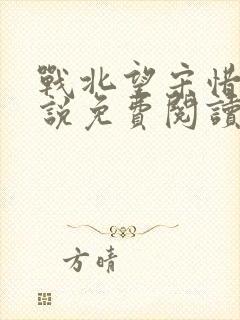 戰北望宋惜
說免費閱讀
方晴